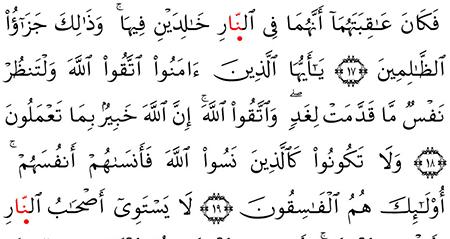 فَكَانَ عَٰقِبَتَهُمَآ أَنَّهُمَا فِى ٱلنَّارِ خَٰلِدَيْنِ فِيهَا ۚ وَذَٰلِكَ جَزَٰٓؤُا۟
ٱلظَّٰلِمِينَ ﴿١٧﴾ يَٰٓأَيُّهَا ٱلَّذِينَ ءَامَنُوا۟ ٱتَّقُوا۟ ٱللَّهَ وَلْتَنظُرْ
نَفْسٌ مَّا قَدَّمَتْ لِغَدٍ ۖ وَٱتَّقُوا۟ ٱللَّهَ ۚ إِنَّ ٱللَّهَ خَبِيرٌۢ بِمَا تَعْمَلُونَ
﴿١٨﴾ وَلَا تَكُونُوا۟ كَٱلَّذِينَ نَسُوا۟ ٱللَّهَ فَأَنسَىٰهُمْ أَنفُسَهُمْ ۚ
أُو۟لَٰٓئِكَ هُمُ ٱلْفَٰسِقُونَ ﴿١٩﴾ لَا يَسْتَوِىٓ أَصْحَٰبُ ٱلنَّارِ